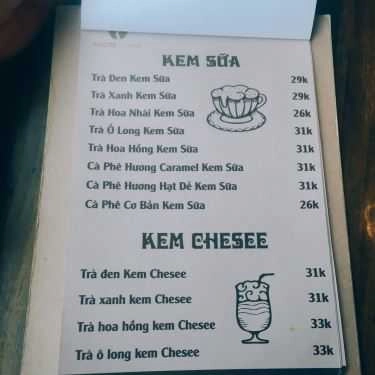 KEM SỮA
Trà Đen Kem Sữa 29k
Trà Xanh Kem Sữa 29k
Trà Hoa Nhài Kem Sữa 26k
Trà Ô Long Kem Sữa 31k
Trà Hoa Hồng Kem Sữa 31k
Cà Phê Hương Caramel Kem Sữa 31k
Cà Phê Hương Hạt Dẻ Kem Sữa 31k
Cà Phê Cơ Bản Kem Sữa 26k
KEM CHESEE
Trà đen Kem Chesee 31k
Trà xanh kem Chesee 31k
Trà hoa hồng kem Chesee 33k
Trà ô long kem Chesee 33k